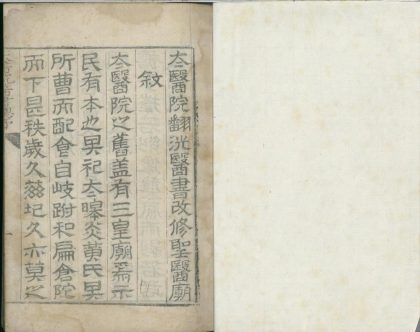 太醫院翻洗醫書改修聖醫廟
敘
太醫院之舊蓋有三皇廟焉示
民有本也其祀太皞炎黃氏其
所曹而配食自岐跗和扁倉陀
而下昱秩歲久玆圮久亦莫之